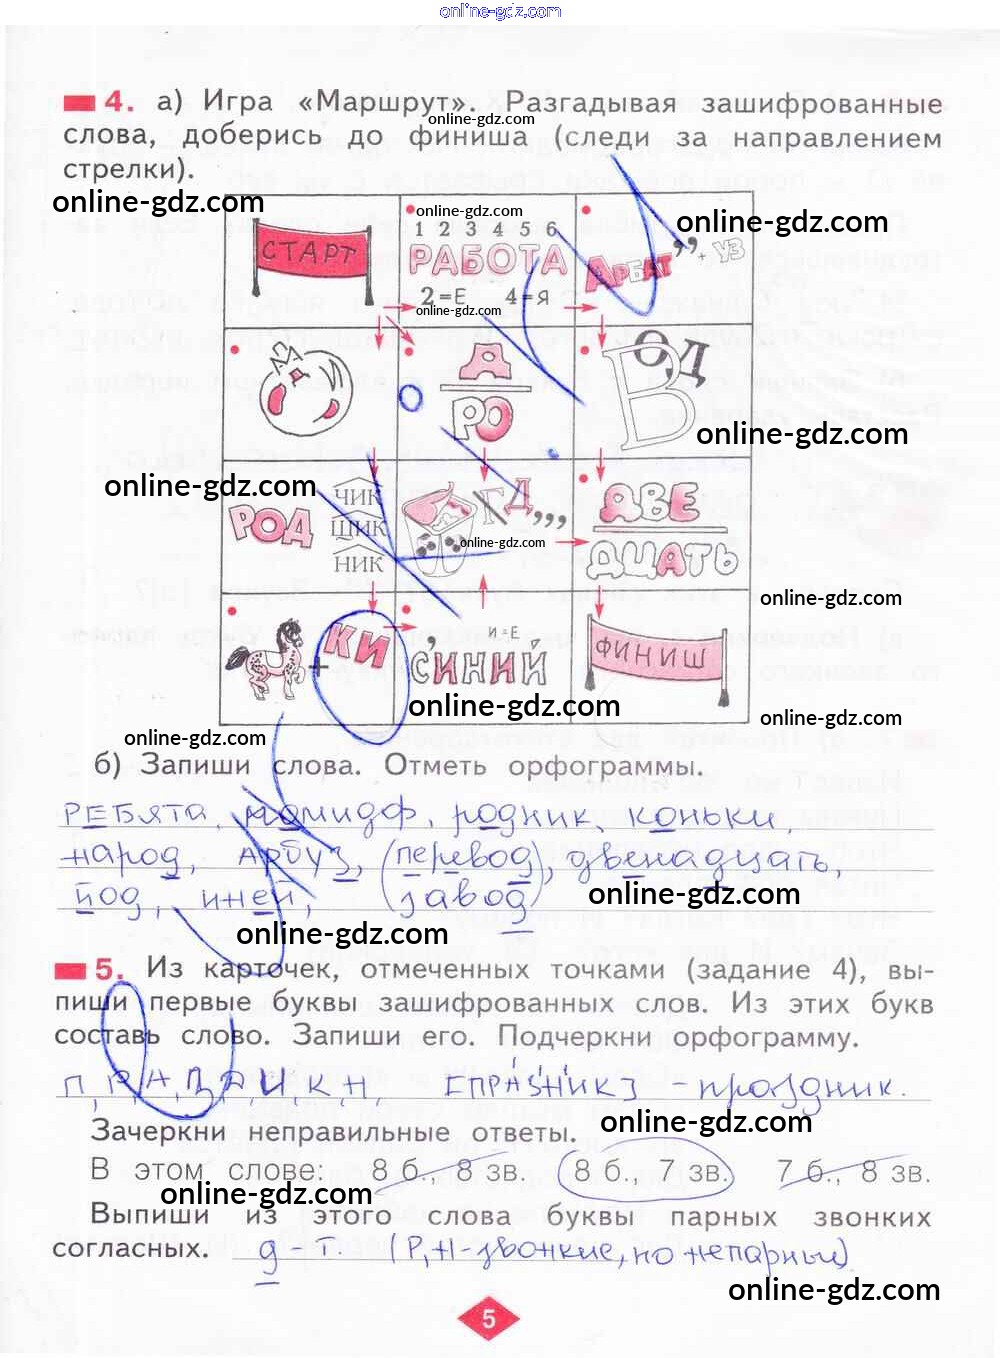 online-gdz.com
4. а) Игра «Маршрут». Разгадывая зашифрованные
слова, доберись до финиша (следи за направлением
стрелки).
online-gdz.com
online-gdz.com
online-gdz.com
СТАРТ
1 2 3 4 5 6
РАБОТА
2=Е 4=Я
online-gdz.com
АРБАТ
,, + УЗ
А
РО
В
ОД
online-gdz.com
online-gdz.com
РОД
ЧИК
ЩИК
НИК
Г Д,,,,
online-gdz.com
ДВЕ
ДЦАТЬ
online-gdz.com
+ КИ
И=Е
СИНИЙ
ФИНИШ
online-gdz.com
online-gdz.com
online-gdz.com
б) Запиши слова. Отметь орфограммы.
РЕБята, помидор, родник, коньки,
народ, Арбуз, (перевод), двенадцать,
под, иней, завод
online-gdz.com
online-gdz.com
5. Из карточек, отмеченных точками (задание 4), вы-
пиши первые буквы зашифрованных слов. Из этих букв
составь слово. Запиши его. Подчеркни орфограмму.
П, Р, А, З, Д, И, К, Н, [ПРА́З'Н'ИК] - праздник.
Зачеркни неправильные ответы.
online-gdz.com
В этом слове: 8 б., 8 зв. 8 б. 7 зв. 7 б., 8 зв.
online-gdz.com
Выпиши из этого слова буквы парных звонких
согласных. д г. (Р, Н-звонкие, но непарные)
online-gdz.com
5